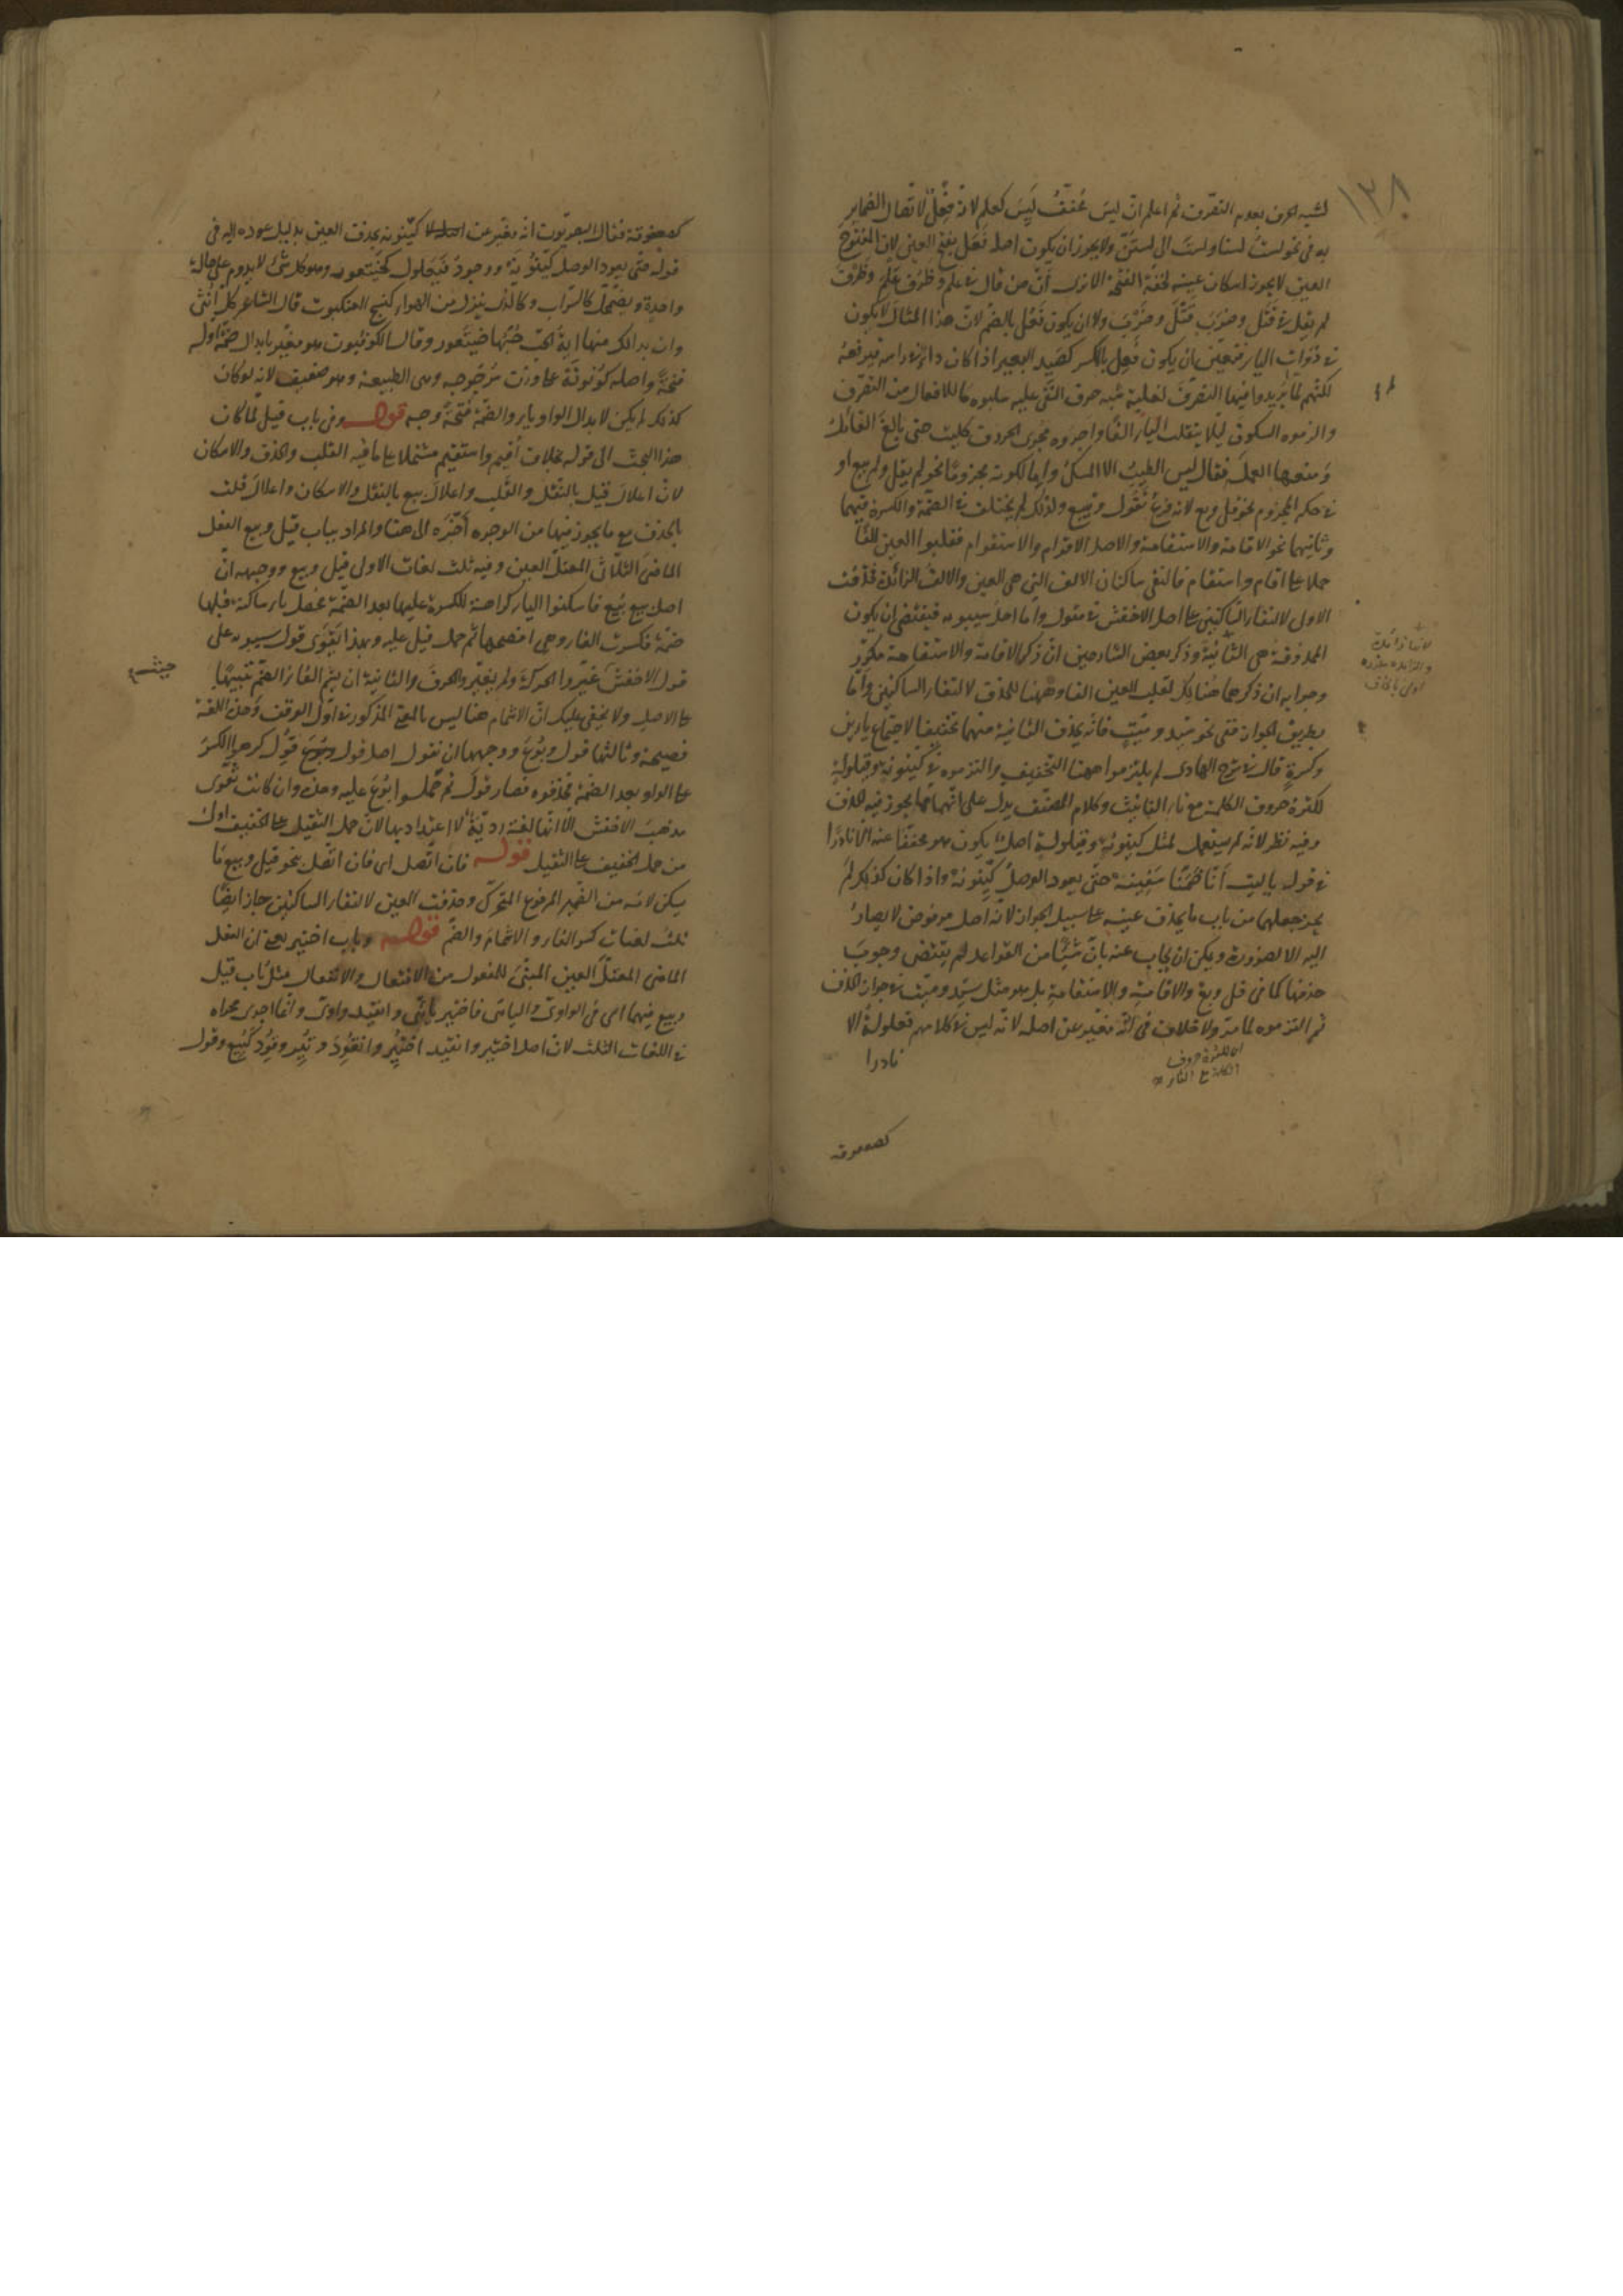 ١٣٨
لشبه الحرف بعدم التصرّف ثم اعلم انّ ليس مخفّف ليس كعلم لا فعلل لاتصال الضماير
به فى نحو لست لسنا ولست الى لستنّ ولا يجوز ان يكون اصله فعل بفتح العين لان المفتوح
العين لا يجوز اسكان عينه لخفّة الفتحة الا ترى أنّ من قال فى علم وظرف علم وظرف
لم يقل فى قتل وضرب قتل وضرب ولا ان يكون فعل بالضم لان هذا المثال لا يكون
فى ذوات الياء فتعين ان يكون فعل بالكسر كصيد البعير اذا كان داء فى راسه فيرفعه
لكنّهم لمّا لم يريدوا فيها التصرف لغلبة شبه حرف النفى عليه سلبوه ما للافعال من التصرف
والزموه السكون ليلا ينقلب الياء الفا واجروه مجرى الحروف كليت حتى بالغ القائل
ومنعها العمل فقال ليس الطيب الا المسك واما لكونه مجزوما نحو لم يقل ولم يبع او
فى حكم المجزوم نحو قل وبع لانه فرع تقول وتبيع ولذلك لم يختلف فى الضمّة والكسرة فيهما
وثانيهما نحو الاقامة والاستقامة والاصل الاقوام والاستقوام فقلبوا العين الفا
حملا على اقام واستقام فالتقى ساكنان الالف التى هى العين والالف الزائدة فحذفت
الاولى لالتقاء الساكنين على اصل الاخفش فى مقول واما اصل سيبويه فيقتضى ان يكون
المحذوفة هى الثانية وذكر بعض الشارحين انّ ذكر الاقامة والاستقامة مكرّر
وجوابه ان ذكرهما هناك لقلب العين الفا وههنا للحذف لالتقاء الساكنين وامّا
بطريق الجواز ففى نحو سيّد وميّت فانه يحذف الثانية منهما تخفيفا لاجتماع ياءين
وكسرة قال فى شرح الهادى لم يلتزموا ههنا التخفيف والتزموه فى كينونة وقيلولة
لكثرة حروف الكلمة مع تاء التانيث وكلام المصنّف يدلّ على انّهما مما يجوز فيه الحذف
وفيه نظر لانه لم يستعمل لمثل كينونة وقيلولة اصل يكون هو مخففا عنه الا نادرا
فى قول يا ليت أنّا ضمّنا سفينة حتى يعود الوصل كيّنونة واذا كان كذلك لم
يجز جعلهما من باب ما يحذف عينه على سبيل الجواز لانه اصل مرفوض لا يصار
اليه الا لضرورة ويمكن ان يجاب عنه بانّ شيئا من القواعد لم يقتض وجوب
حذفها كما فى قل وبع والاقامة والاستقامة بل هو مثل سيّد وميّت فى جواز الحذف
ثم التزموه لما مرّ ولا خلاف فى انّه مغيّر عن اصله لانّه ليس فى كلامهم فعلولة الا
نادرا
اى لكثرة حروف
الكلمة مع التاء
لانها زائدة
كصعفوقة
كصعفوقة فقال البصريون انه مغيّر عن كيّنونة بحذف العين بدليل عوده اليه فى
قوله حتى يعود الوصل كيّنونة ووجود فيعلول كخيتعور وهو كل شئ لا يدوم على حالة
واحدة ويضمحلّ كالسّراب وكالذى ينزل من الهواء كنسج العنكبوت قال الشاعر كل أنثى
وان بدا لك منها اية الحبّ حبّها خيتعور وقال الكوفيون هو مغيّر بابدال ضمّة اوله
فتحة واصله كونونة على وزن سرجوجة وهى الطبيعة وهو ضعيف لانه لو كان
كذلك لم يكن لابدال الواو ياء والضمّة فتحة وجه قوله وفى باب قيل لما كان
هذا البحث الى قوله بخلاف أقيم واستقيم مشتملا على ما فيه القلب والحذف والاسكان
لانّ اعلال قيل بالنقل والقلب واعلال بيع بالنقل والاسكان واعلال قلت
بالحذف مع ما يجوز فيها من الوجوه أخّره الى هنا والمراد بباب قيل وبيع الفعل
الماضى الثلاثى المعتلّ العين وفيه ثلث لغات الاولى قيل وبيع ووجهه انّ
اصل بيع بيع فاسكنوا الياء كراهة للكسرة عليها بعد الضمّة فحصل ياء ساكنة قبلها
ضمّة فكسرت الفاء وهى افصحها ثم حمل قيل عليه وبهذا يقوى قول سيبويه على
قول الاخفش غيّروا الحركة ولم يغيّروا الحرف والثانية ان يشمّ الفاء الضمّ تنبيها
على الاصل ولا يخفى عليك انّ الاشمام هنا ليس بالمعنى المذكور فى اوّل الوقف وهذه اللغة
فصيحة وثالثها قول وبوع ووجهها ان نقول اصل قول قول كرهوا الكسر
على الواو بعد الضمّة فحذفوه فصار قول ثم حملوا بوع عليه وهذه وان كانت تقوى
مذهب الاخفش الّا انها لغة رديّة لا اعتداد بها لانّ حمل الثقيل على الخفيف اولى
من حمل الخفيف على الثقيل قوله فان اتّصل اى فان اتّصل بنحو قيل وبيع ما
يسكن لامه من الضمير المرفوع المتحرك وحذفت العين لالتقاء الساكنين جاز ايضا
ثلث لغات كسر الفاء والاشمام والضمّ قوله وباب اختير يعنى ان الفعل
الماضى المعتلّ العين المبنىّ للمفعول من الافتعال والانفعال مثل باب قيل
وبيع فيهما اى فى الواوى واليائى فاختير يائى وانقيد واوى وانّما اجرى مجراه
فى اللغات الثلث لانّ اصل اختير وانقيد اختير وانقود و تير وقود كبيع وقول